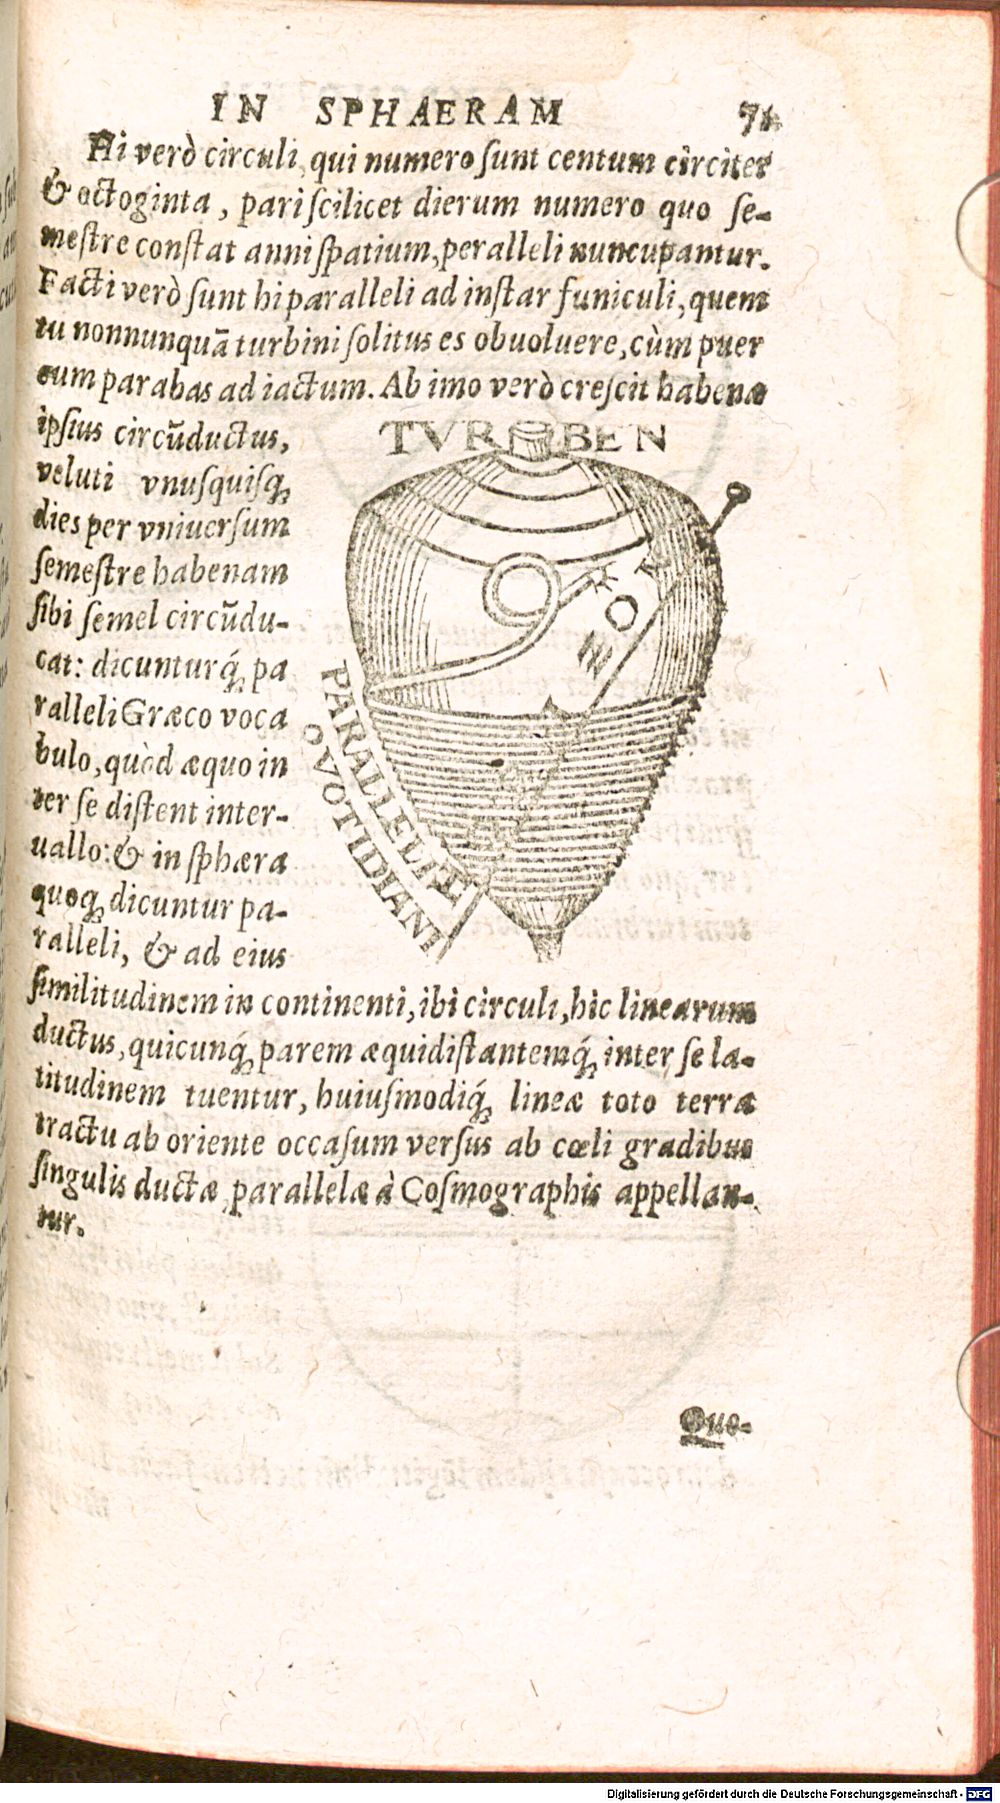 IN SPHAERAM 71
Hi verò circuli, qui numero sunt centum circiter
& octoginta, pari scilicet dierum numero quo se-
mestre constat anni spatium, peralleli nuncupantur.
Facti verò sunt hi paralleli ad instar funiculi, quem
tu nonnunquā turbini solitus es obuoluere, cùm puer
eum parabas ad iactum. Ab imo verò crescit habenæ
ipsius circūductus,
veluti vnusquisq́;
dies per vniuersum
semestre habenam
sibi semel circūdu-
cat: dicunturq́; pa
ralleli Græco voca
bulo, quòd æquo in
ter se distent inter-
uallo: & in sphæra
quoq; dicuntur pa-
ralleli, & ad eius
TVRBEN
PARALLELI
QVOTIDIANI
similitudinem in continenti, ibi circuli, hic linearum
ductus, quicunq́; parem æquidistantemq́; inter se la-
titudinem tuentur, huiusmodiq́; lineæ toto terræ
tractu ab oriente occasum versus ab cœli gradibus
singulis ductæ parallelæ à Cosmographis appellan-
tur.
Quo-
Digitalisierung gefördert durch die Deutsche Forschungsgemeinschaft - DFG